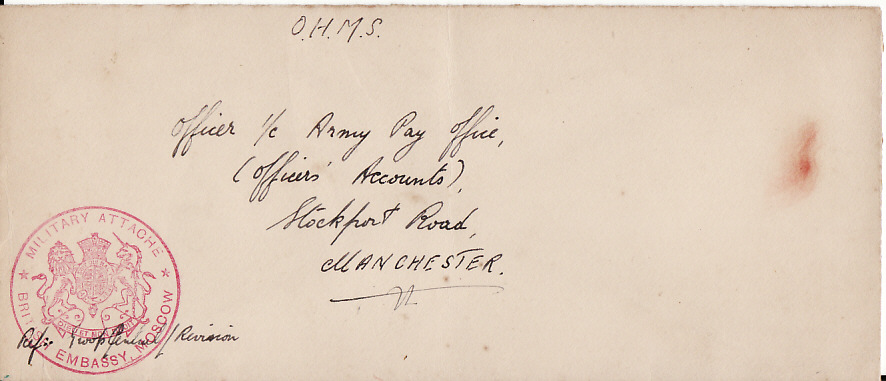 O.H.M.S.
Officer i/c Army Pay Office,
(Officers' Accounts),
Stockport Road,
MANCHESTER.
★ MILITARY ATTACHE ★
BRITISH EMBASSY, MOSCOW
DIEU ET MON DROIT
Ref:- /Revision